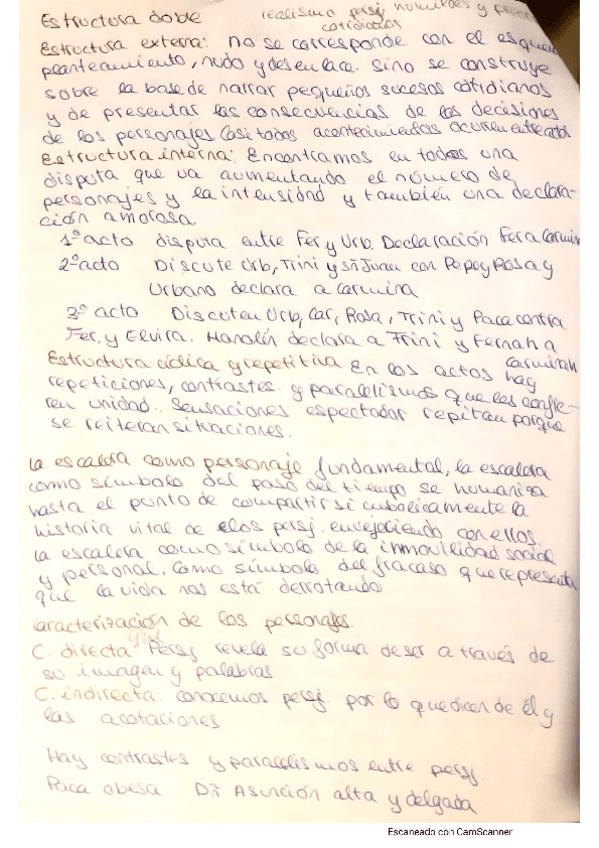 Estructura doble realismo persj humildes y
cotidianos
Estructura externa: no se corresponde con el esquema
planteamiento, nudo y desenlace. Sino se construye
sobre la base de narrar pequeños sucesos cotidianos
y de presentar las consecuencias de las decisiones
de los personajes. Casi todos acontecimientos ocurren entreactos
Estructura interna: Encontramos en todos una
disputa que va aumentando el número de
personajes y la intensidad y también una declara-
ción amorosa.
1º acto disputa entre Fer y Urb. Declaración Fer a Carmina
2º acto Discute Urb, Trini y sñ Juan con Pepe y Rosa y
Urbano declara a Carmina
3º acto Discuten Urb, Car, Rosa, Trini y Paca contra
Fer. y Elvira. Manolín declara a Trini y Fernan h a
Carmina h
Estructura cíclica y repetitiva En los actos hay
repeticiones, contrastes y paralelismos que les confie-
ren unidad. Sensaciones espectador repitan porque
se reiteran situaciones.
La escalera como personaje fundamental, la escalera
como símbolo del paso del tiempo se humaniza
hasta el punto de compartir simbolicamente la
historia vital de los persj. envejeciendo con ellos.
La escalera como símbolo de la inmovilidad social
y personal. Como símbolo del fracaso que representa
que la vida nos está derrotando
Caracterización de los personajes
C. directa persj. revela su forma de ser a través de
su imagen y palabras
C. indirecta: conocemos persj. por lo que dicen de él y
las acotaciones
Hay contrastes y paralelismos entre persj.
Paca obesa Dñ Asunción alta y delgada
Escaneado con CamScanner